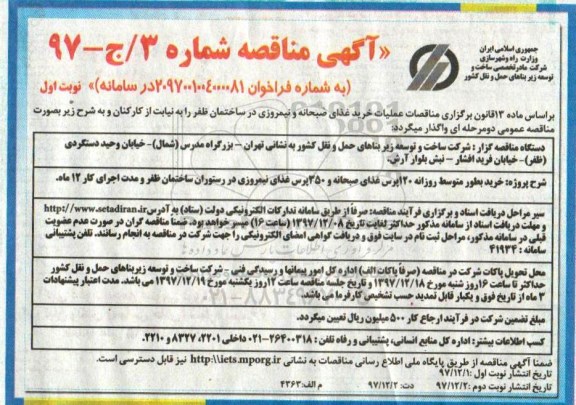 جمهوری اسلامی ایران
وزارت راه وشهرسازی
شرکت مادرتخصصی ساخت و
توسعه زیربناهای حمل و نقل کشور
«آگهی مناقصه شماره ۳/ج-۹۷
(به شماره فراخوان ۲۰۹۷۰۰۱۰۰۴۰۰۰۰۸۱در سامانه)» نوبت اول
براساس ماده ۱۳قانون برگزاری مناقصات عملیات خرید غذای صبحانه و نیمروزی در ساختمان ظفر را به نیابت از کارکنان و به شرح زیر بصورت
مناقصه عمومی دومرحله ای واگذار میگردد:
دستگاه مناقصه گزار : شرکت ساخت و توسعه زیربناهای حمل و نقل کشور به نشانی تهران – بزرگراه مدرس (شمال)- خیابان وحید دستگردی
(ظفر)- خیابان فرید افشار – نبش بلوار آرش.
شرح پروژه: خرید بطور متوسط روزانه ۱۲۰پرس غذای صبحانه و ۳۵۰پرس غذای نیمروزی در رستوران ساختمان ظفر و مدت اجرای کار ۱۲ ماه.
سیر مراحل دریافت اسناد و برگزاری فرآیند مناقصه: صرفاً از طریق سامانه تدارکات الکترونیکی دولت (ستاد) به آدرس http://www.setadiran.ir
و مهلت دریافت اسناد از سامانه مذکور حداکثر لغایت تاریخ ۱۳۹۷/۱۲/۰۸ (ساعت ۱۶) میسر خواهد بود. ضمناً مناقصه گران در صورت عدم عضویت
قبلی در سامانه مذکور، مراحل ثبت نام در سایت فوق و دریافت گواهی امضای الکترونیکی را جهت شرکت در مناقصه به انجام رسانند. تلفن پشتیبانی
سامانه : ۴۱۹۳۴
محل تحویل پاکات شرکت در مناقصه (صرفاً پاکات الف) اداره کل امور پیمانها و رسیدگی فنی – شرکت ساخت و توسعه زیربناهای حمل و نقل کشور
حداکثر تا ساعت ۱۶روز شنبه مورخ ۱۳۹۷/۱۲/۱۸ و تاریخ جلسه مناقصه ساعت ۱۲روز یکشنبه مورخ ۱۳۹۷/۱۲/۱۹ می باشد. مدت اعتبار پیشنهادات
۳ ماه از تاریخ فوق و یکبار قابل تمدید حسب تشخیص کارفرما می باشد.
مبلغ تضمین شرکت در فرآیند ارجاع کار ۵۰۰ میلیون ریال تعیین میگردد.
کسب اطلاعات بیشتر: اداره کل منابع انسانی، پشتیبانی و رفاه تلفن : ۲۶۴۰۰۳۱۸-۰۲۱ داخلی ۲۲۰۱، ۸۳۲۷ و ۲۲۱۰.
ضمناً آگهی مناقصه از طریق پایگاه ملی اطلاع رسانی مناقصات به نشانی http:\\iets.mporg.ir نیز قابل دسترسی است.
تاریخ انتشار نوبت اول :۹۷/۱۲/۱
تاریخ انتشار نوبت دوم :۹۷/۱۲/۲ دت: ۹۷/۱۲/۲ م الف:۴۳۶۳